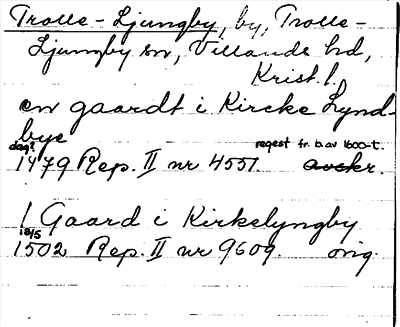 Trolle-Ljungby, by, Trolle-
Ljungby sn, Villands hd,
Krist. l.
en gaardt i Kircke Lynd-
bye
dag? regest fr. b. av 1600-t.
1479 Rep. II nr 4551. avskr.
1 Gaard i Kirkelyngby
18/5
1502 Rep. II nr 9609. orig.